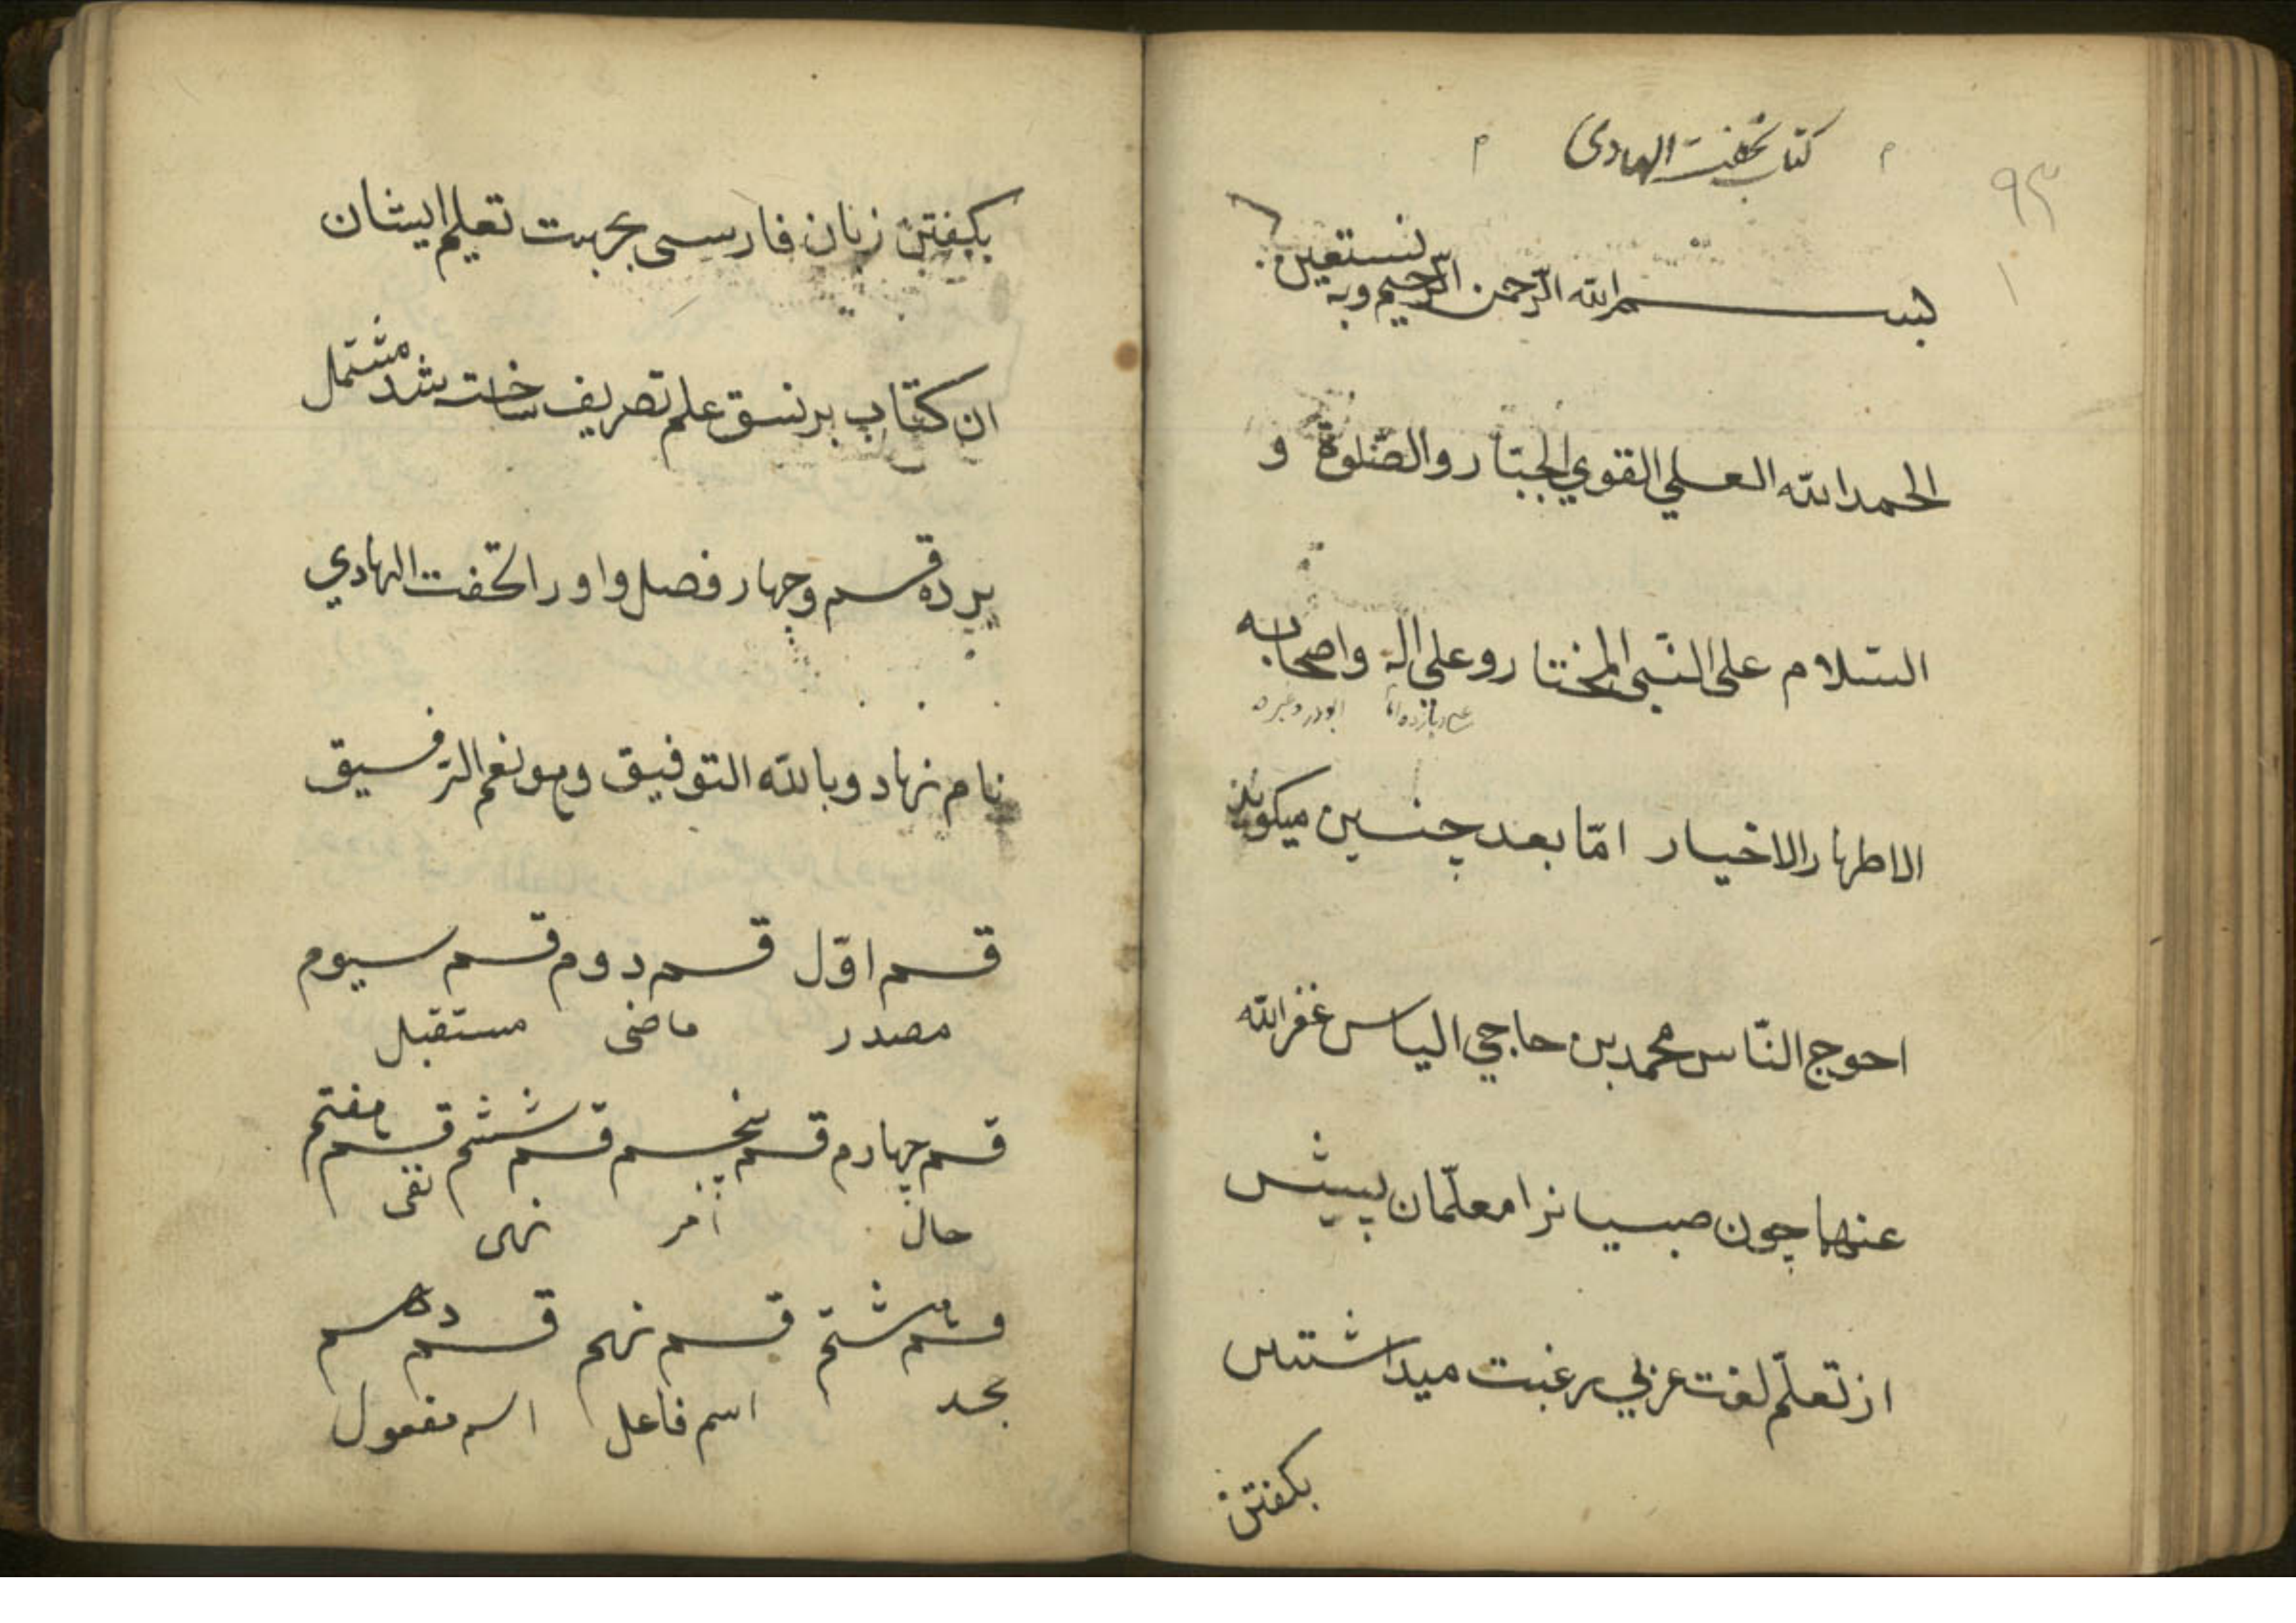 كتاب تحفت الهادى
۹۳
۱
بسم الله الرّحمن الرّحيم وبه نستعين
الحمد الله العلي القوي الجبّار والصّلوة و
السّلام على النّبى المختار وعلى اله واصحابه
ابوذر وغيره
الاطهار الاخيار امّا بعد چنين ميكويد
احوج النّاس محمد بن حاجي الياس غفر الله
عنهما چون صبيانرا معلّمان پيش
از تعلّم لغت عربي رغبت ميداشتند
بكفتن
بكفتن زبان فارسى بجهت تعليم ايشان
ان كتاب بر نسق علم تصريف ساخت شد مشتمل
بر ده قسم وچهار فصل واورا تحفت الهادي
نام نهاد وبالله التوفيق وهو نعم الرّفيق
قسم اوّل قسم دوم قسم سيوم
مصدر ماضى مستقبل
قسم چهارم قسم پنجم قسم ششم قسم هفتم
حال امر نهى نفى
قسم هشتم قسم نهم قسم دهم
جحد اسم فاعل اسم مفعول